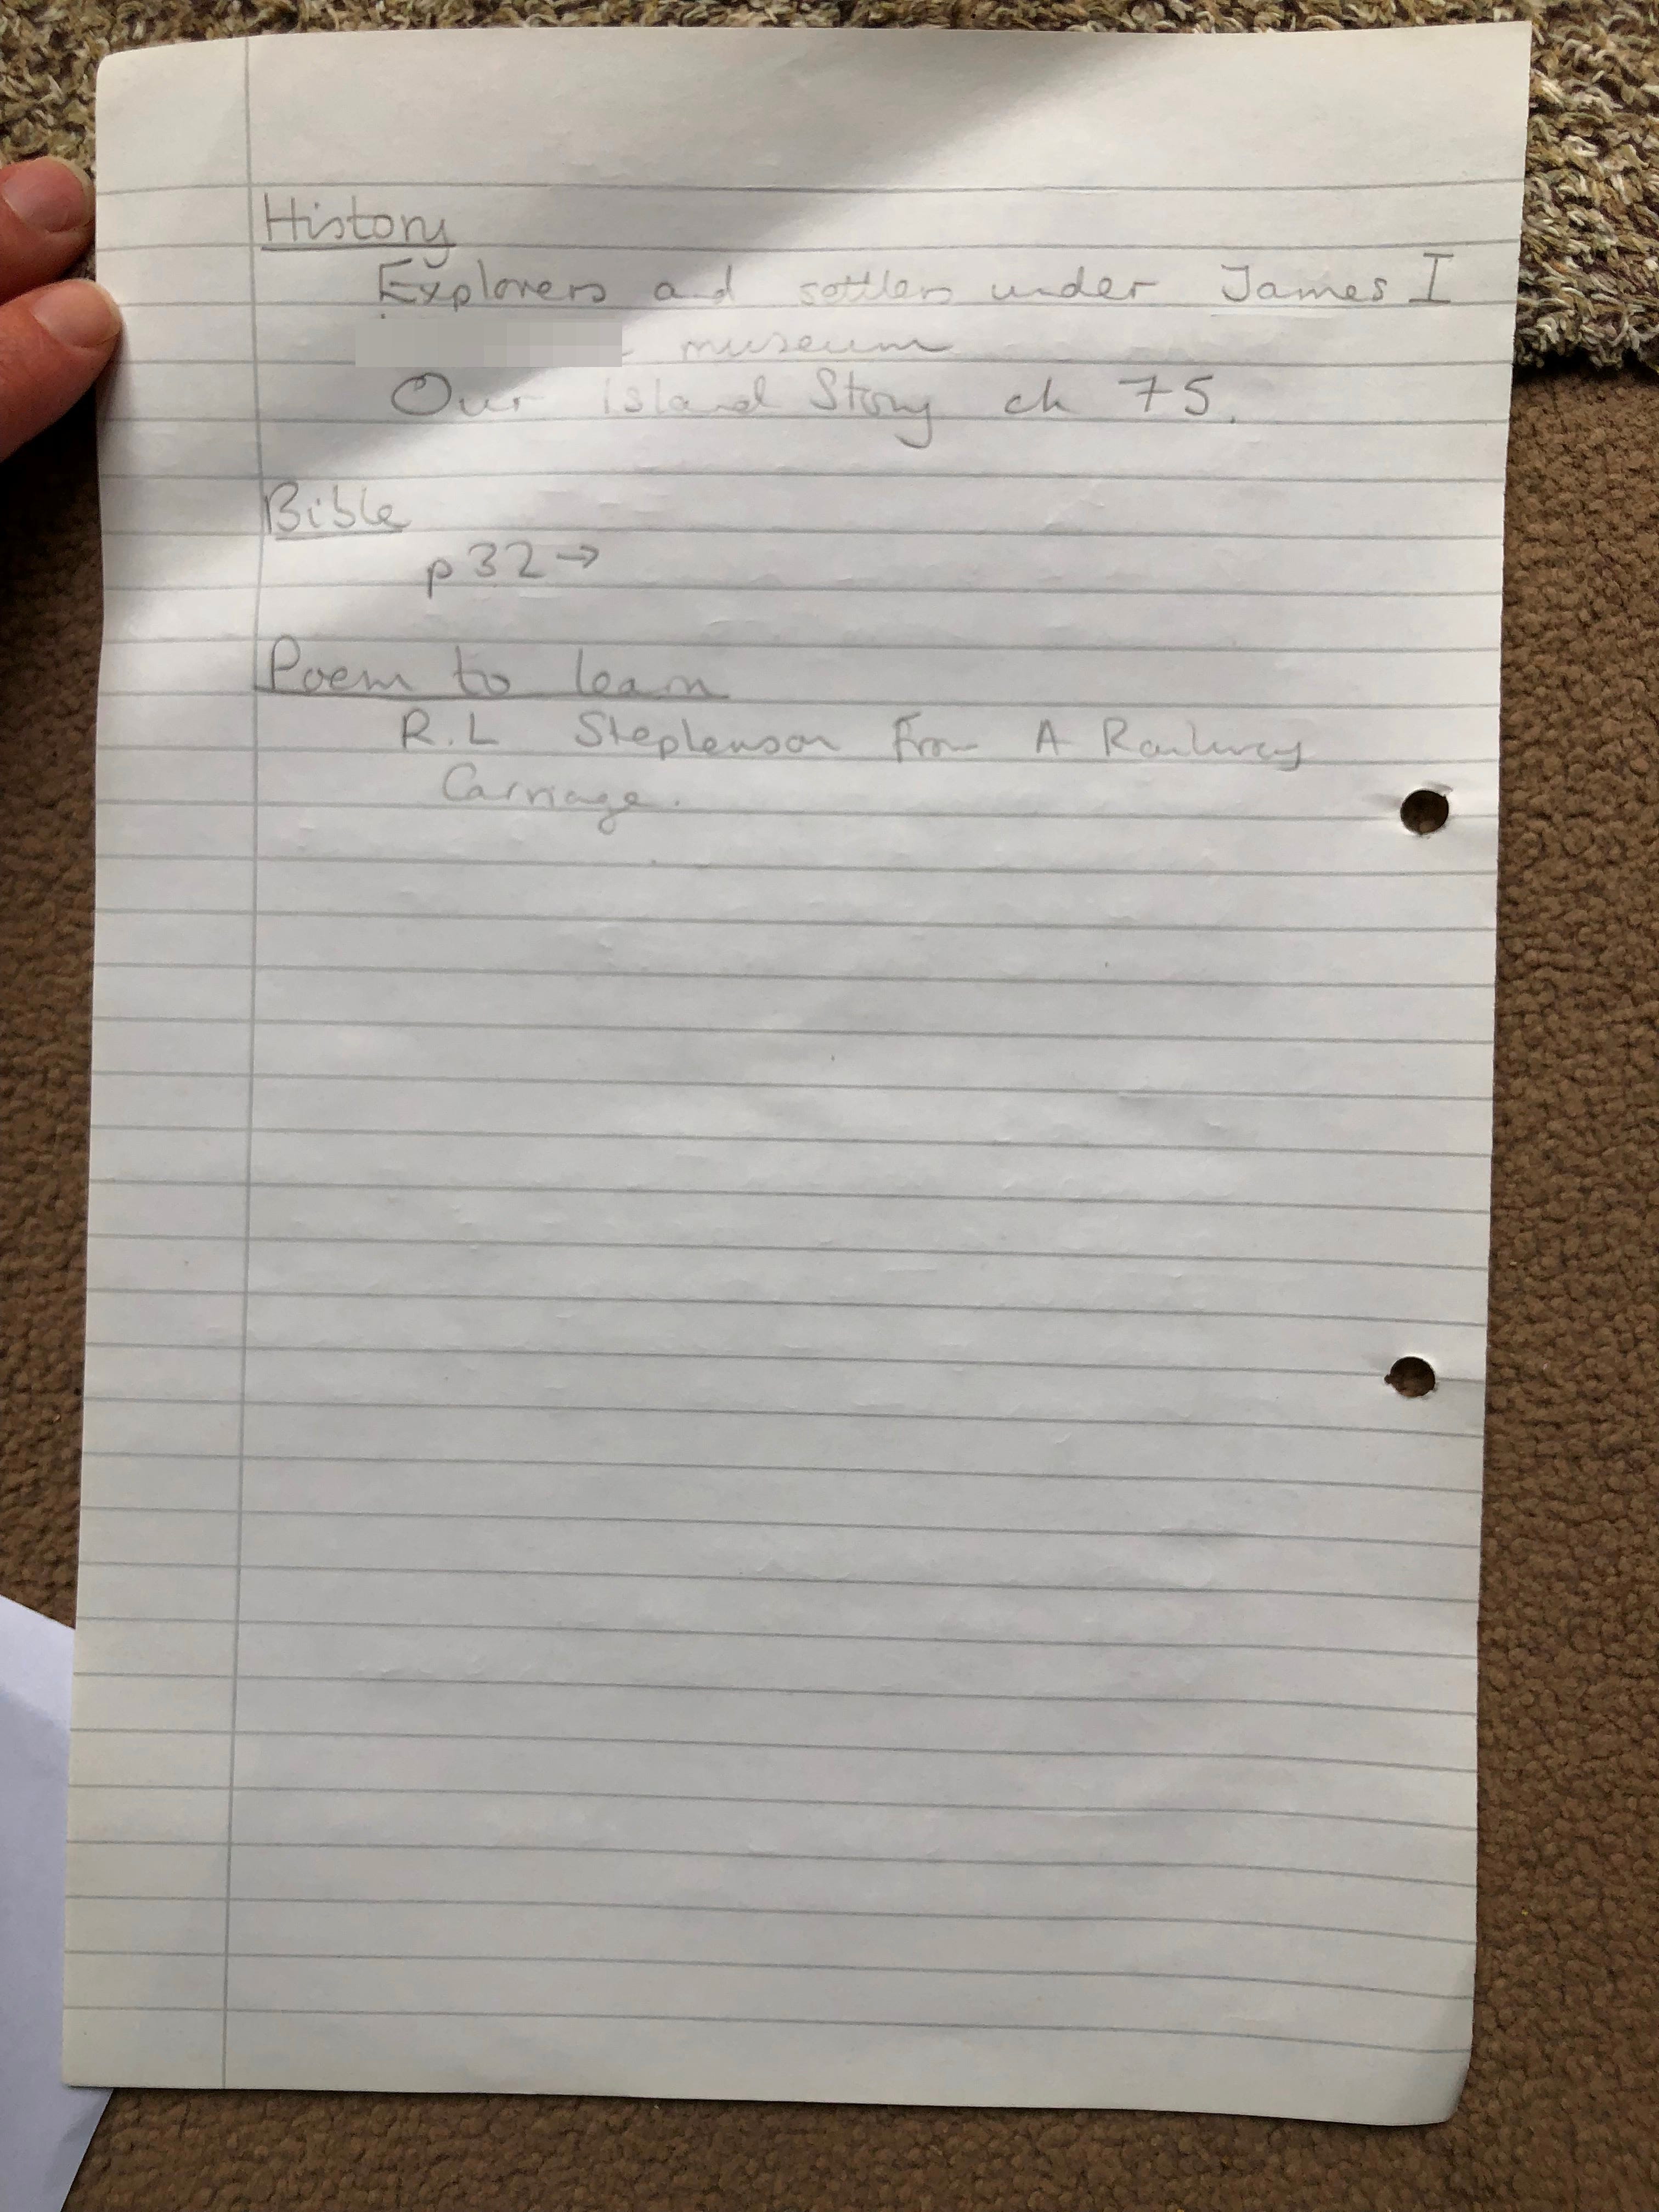 History
Explorers and settlers under James I
museum
Our Island Story ch 75.
Bible
p32→
Poem to learn
R.L Stephenson From A Railway
Carriage.